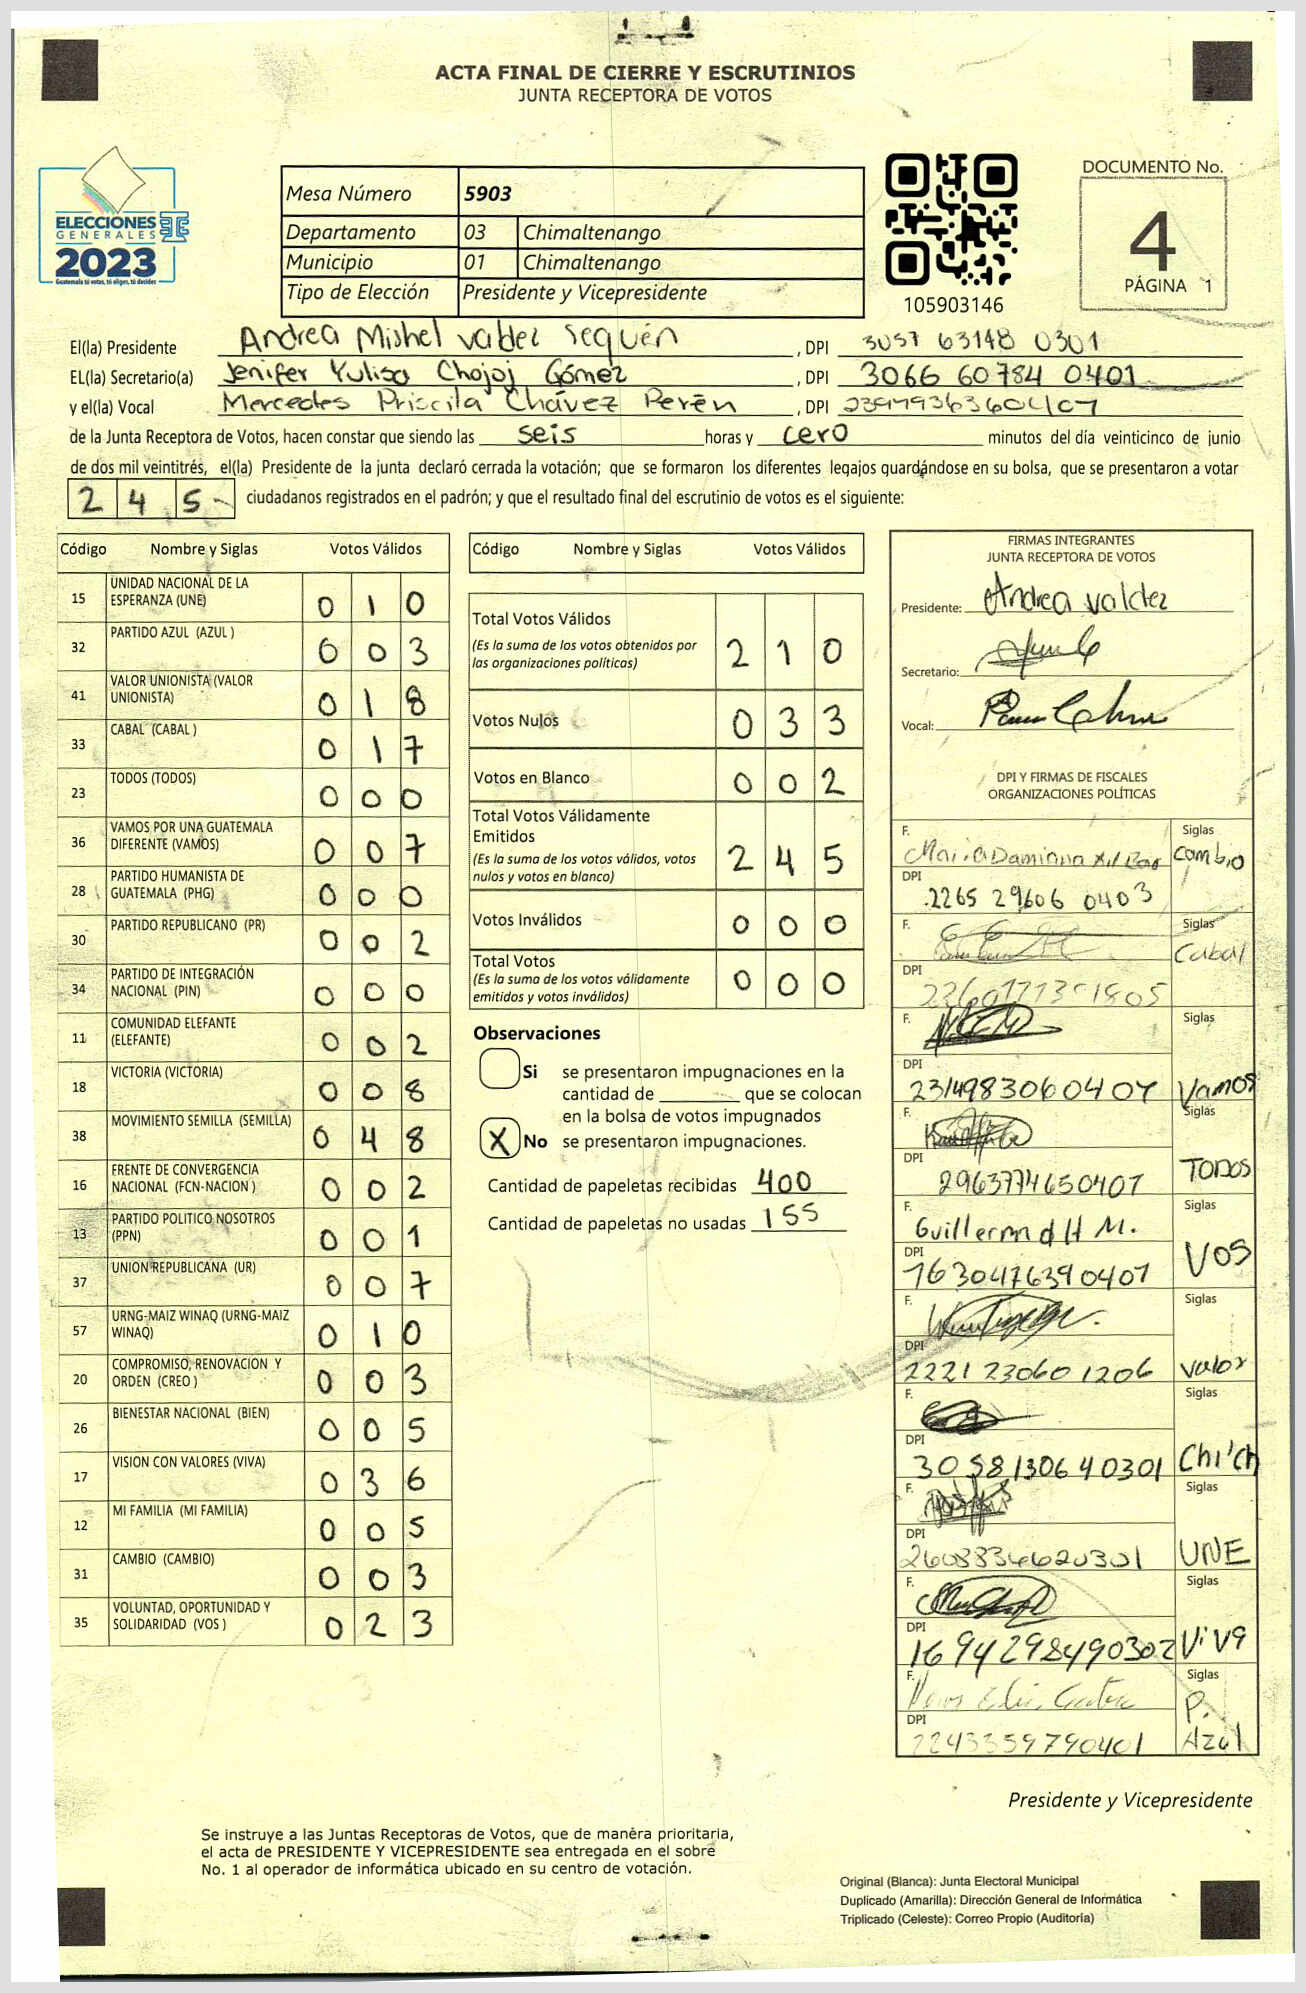 ACTA FINAL DE CIERRE Y ESCRUTINIOS
JUNTA RECEPTORA DE VOTOS
ELECCIONES
GENERALES
2023
Guatemala tú votas, tú eliges, tú decides
Mesa Número 5903
Departamento 03 Chimaltenango
Municipio 01 Chimaltenango
Tipo de Elección Presidente y Vicepresidente
105903146
DOCUMENTO No.
4
PÁGINA 1
El(la) Presidente Andrea Mishel Valdez Sequén, DPI 3057 63148 0301
EL(la) Secretario(a) Jenifer Yulisa Chojoj Gómez, DPI 3066 60784 0401
y el(la) Vocal Mercedes Priscila Chávez Perén, DPI
de la Junta Receptora de Votos, hacen constar que siendo las seis horas y cero minutos del día veinticinco de junio
de dos mil veintitrés, el(la) Presidente de la junta declaró cerrada la votación; que se formaron los diferentes legajos guardándose en su bolsa, que se presentaron a votar
2 4 5 ciudadanos registrados en el padrón; y que el resultado final del escrutinio de votos es el siguiente:
Código Nombre y Siglas Votos Válidos
15 UNIDAD NACIONAL DE LA
ESPERANZA (UNE) 0 1 0
32 PARTIDO AZUL (AZUL ) 0 0 3
41 VALOR UNIONISTA (VALOR
UNIONISTA) 0 1 8
33 CABAL (CABAL ) 0 1 7
23 TODOS (TODOS) 0 0 0
36 VAMOS POR UNA GUATEMALA
DIFERENTE (VAMOS) 0 0 7
28 PARTIDO HUMANISTA DE
GUATEMALA (PHG) 0 0 0
30 PARTIDO REPUBLICANO (PR) 0 0 2
34 PARTIDO DE INTEGRACIÓN
NACIONAL (PIN) 0 0 0
11 COMUNIDAD ELEFANTE
(ELEFANTE) 0 0 2
18 VICTORIA (VICTORIA) 0 0 8
38 MOVIMIENTO SEMILLA (SEMILLA) 0 4 8
16 FRENTE DE CONVERGENCIA
NACIONAL (FCN-NACION ) 0 0 2
13 PARTIDO POLITICO NOSOTROS
(PPN) 0 0 1
37 UNION REPUBLICANA (UR) 0 0 7
57 URNG-MAIZ WINAQ (URNG-MAIZ
WINAQ) 0 1 0
20 COMPROMISO, RENOVACION Y
ORDEN (CREO ) 0 0 3
26 BIENESTAR NACIONAL (BIEN) 0 0 5
17 VISION CON VALORES (VIVA) 0 3 6
12 MI FAMILIA (MI FAMILIA) 0 0 5
31 CAMBIO (CAMBIO) 0 0 3
35 VOLUNTAD, OPORTUNIDAD Y
SOLIDARIDAD (VOS ) 0 2 3
Código Nombre y Siglas Votos Válidos
Total Votos Válidos
(Es la suma de los votos obtenidos por
las organizaciones políticas) 2 1 0
Votos Nulos 0 3 3
Votos en Blanco 0 0 2
Total Votos Válidamente
Emitidos
(Es la suma de los votos válidos, votos
nulos y votos en blanco) 2 4 5
Votos Inválidos 0 0 0
Total Votos
(Es la suma de los votos válidamente
emitidos y votos inválidos) 0 0 0
Observaciones
Si se presentaron impugnaciones en la
cantidad de ________ que se colocan
en la bolsa de votos impugnados
X No se presentaron impugnaciones.
Cantidad de papeletas recibidas 400
Cantidad de papeletas no usadas 155
FIRMAS INTEGRANTES
JUNTA RECEPTORA DE VOTOS
Presidente: Andrea Valdez
Secretario:
Vocal:
DPI Y FIRMAS DE FISCALES
ORGANIZACIONES POLÍTICAS
F. Siglas
Cambio
DPI 2265 29606 0403
F. Siglas
Cabal
DPI
F. Siglas
DPI
2314983060407 Vamos
F. Siglas
DPI
2963774650407 TODOS
F. Siglas
Guillermo H M.
DPI
1630476390401 VOS
F. Siglas
DPI
2221 23060 1206 Valor
F. Siglas
DPI
3058130640301 Chi'ch
F. Siglas
DPI
2608834620301 UNE
F. Siglas
DPI
1694298490302 ViVa
F. Siglas
DPI
2243359790401 P. Azul
Presidente y Vicepresidente
Se instruye a las Juntas Receptoras de Votos, que de manera prioritaria,
el acta de PRESIDENTE Y VICEPRESIDENTE sea entregada en el sobre
No. 1 al operador de informática ubicado en su centro de votación.
Original (Blanca): Junta Electoral Municipal
Duplicado (Amarilla): Dirección General de Informática
Triplicado (Celeste): Correo Propio (Auditoría)